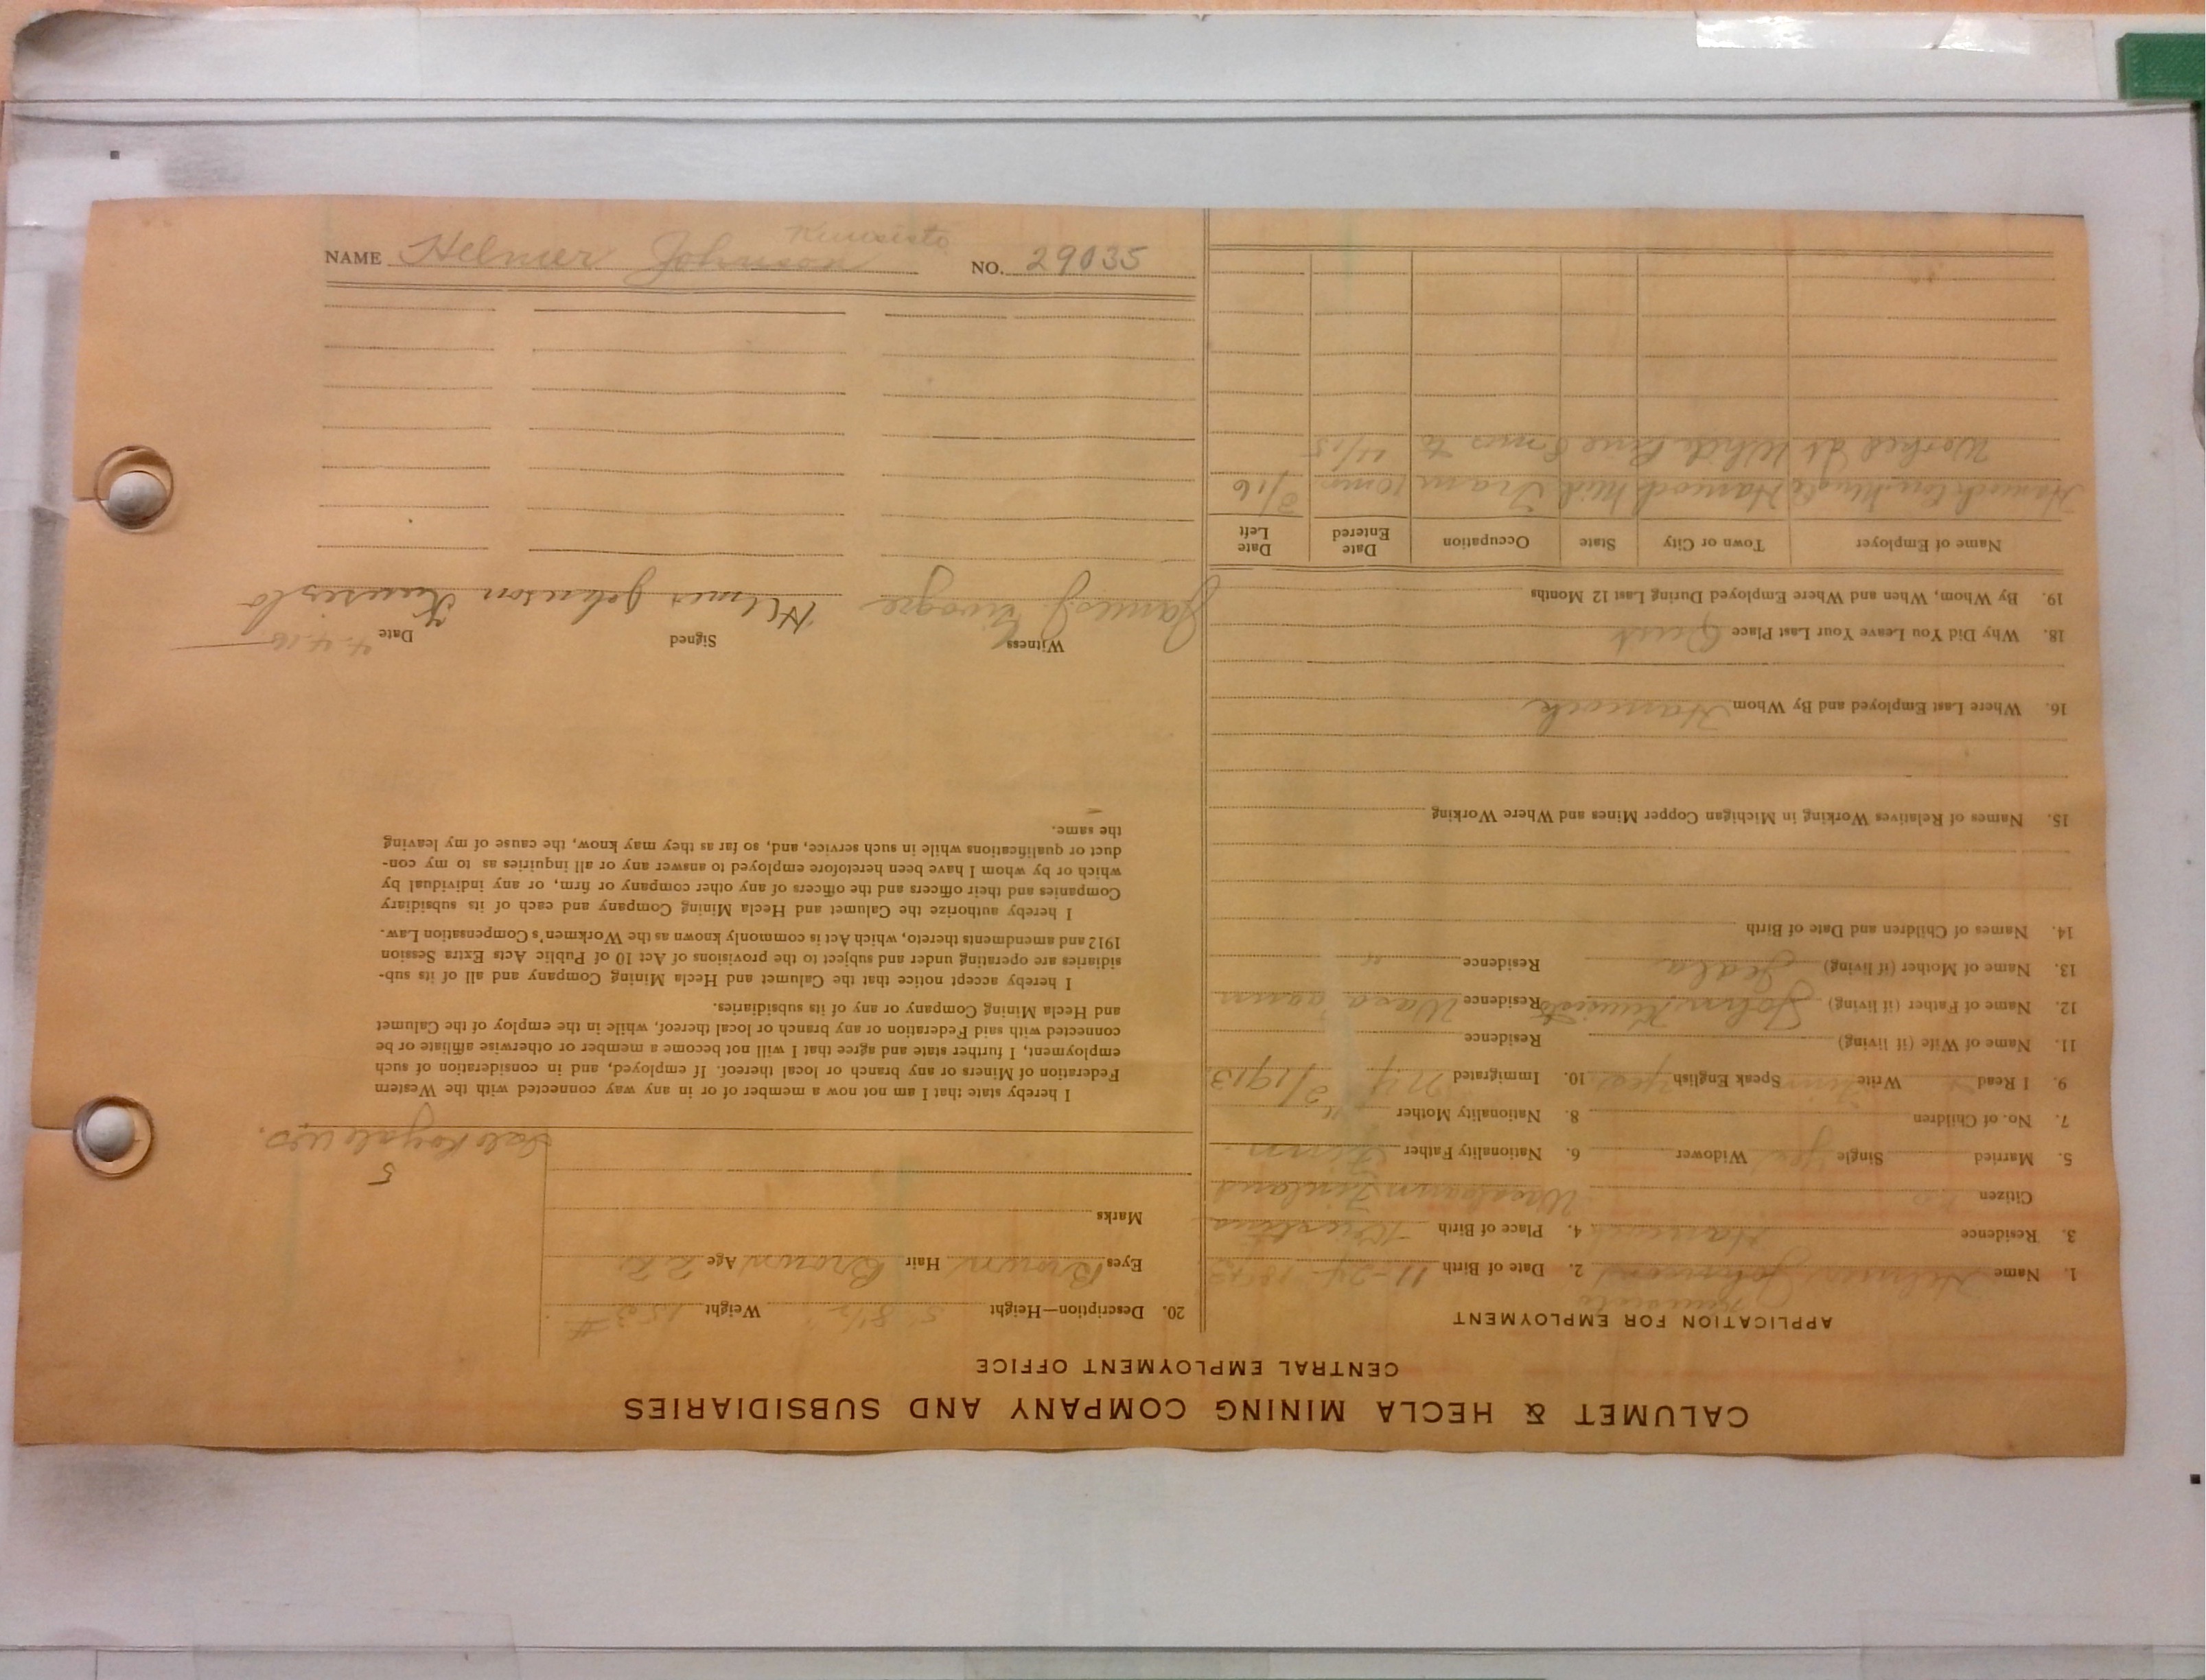 CALUMET & HECLA MINING COMPANY AND SUBSIDIARIES
CENTRAL EMPLOYMENT OFFICE
APPLICATION FOR EMPLOYMENT
1. Name Helmer Johnson 2. Date of Birth 11-24-
3. Residence Hancock 4. Place of Birth
Citizen no Finland
5. Married Single yes Widower 6. Nationality Father Finn
7. No. of Children 8. Nationality Mother "
9. I Read Write Finn Speak English 10. Immigrated N Y 3/1913
11. Name of Wife (if living) Residence
12. Name of Father (if living) John Residence
13. Name of Mother (if living) Residence "
14. Names of Children and Date of Birth
15. Names of Relatives Working in Michigan Copper Mines and Where Working
16. Where Last Employed and By Whom Hancock
18. Why Did You Leave Your Last Place Quit
19. By Whom, When and Where Employed During Last 12 Months
Name of Employer Town or City State Occupation Date Entered Date Left
Hancock Con. Hancock Mich Tram 3/16
Worked at White Pine 6 mos to 4/15
20. Description—Height 5' 8 1/2" Weight #
Eyes Brown Hair Brown Age 22
Marks
5
Isle Royale
I hereby state that I am not now a member of or in any way connected with the Western
Federation of Miners or any branch or local thereof. If employed, and in consideration of such
employment, I further state and agree that I will not become a member or otherwise affiliate or be
connected with said Federation or any branch or local thereof, while in the employ of the Calumet
and Hecla Mining Company or any of its subsidiaries.
I hereby accept notice that the Calumet and Hecla Mining Company and all of its sub-
sidiaries are operating under and subject to the provisions of Act 10 of Public Acts Extra Session
1912 and amendments thereto, which Act is commonly known as the Workmen's Compensation Law.
I hereby authorize the Calumet and Hecla Mining Company and each of its subsidiary
Companies and their officers and the officers of any other company or firm, or any individual by
which or by whom I have been heretofore employed to answer any or all inquiries as to my con-
duct or qualifications while in such service, and, so far as they may know, the cause of my leaving
the same.
Witness Signed Date 4.4.16
James J. Helmer Johnson
Kuusisto
NAME Helmer Johnson NO. 29035